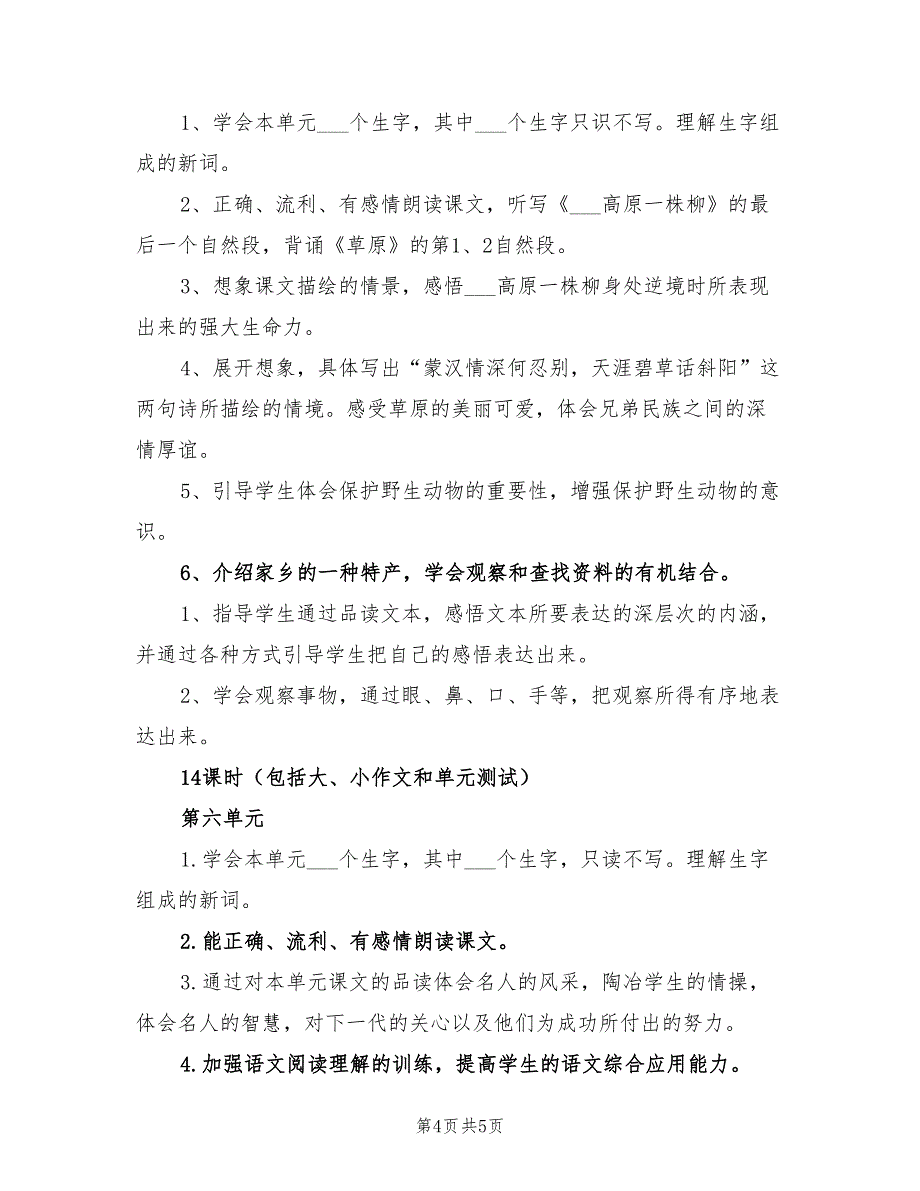 1、学会本单元___个生字，其中___个生字只识不写。理解生字组
成的新词。
2、正确、流利、有感情朗读课文，听写《___高原一株柳》的最
后一个自然段，背诵《草原》的第1、2自然段。
3、想象课文描绘的情景，感悟___高原一株柳身处逆境时所表现
出来的强大生命力。
4、展开想象，具体写出“蒙汉情深何忍别，天涯碧草话斜阳”这
两句诗所描绘的情境。感受草原的美丽可爱，体会兄弟民族之间的深
情厚谊。
5、引导学生体会保护野生动物的重要性，增强保护野生动物的意
识。
6、介绍家乡的一种特产，学会观察和查找资料的有机结合。
1、指导学生通过品读文本，感悟文本所要表达的深层次的内涵，
并通过各种方式引导学生把自己的感悟表达出来。
2、学会观察事物，通过眼、鼻、口、手等，把观察所得有序地表
达出来。
14课时（包括大、小作文和单元测试）
第六单元
1.学会本单元___个生字，其中___个生字，只读不写。理解生字
组成的新词。
2.能正确、流利、有感情朗读课文。
3.通过对本单元课文的品读体会名人的风采，陶冶学生的情操，
体会名人的智慧，对下一代的关心以及他们为成功所付出的努力。
4.加强语文阅读理解的训练，提高学生的语文综合应用能力。
第4页共5页